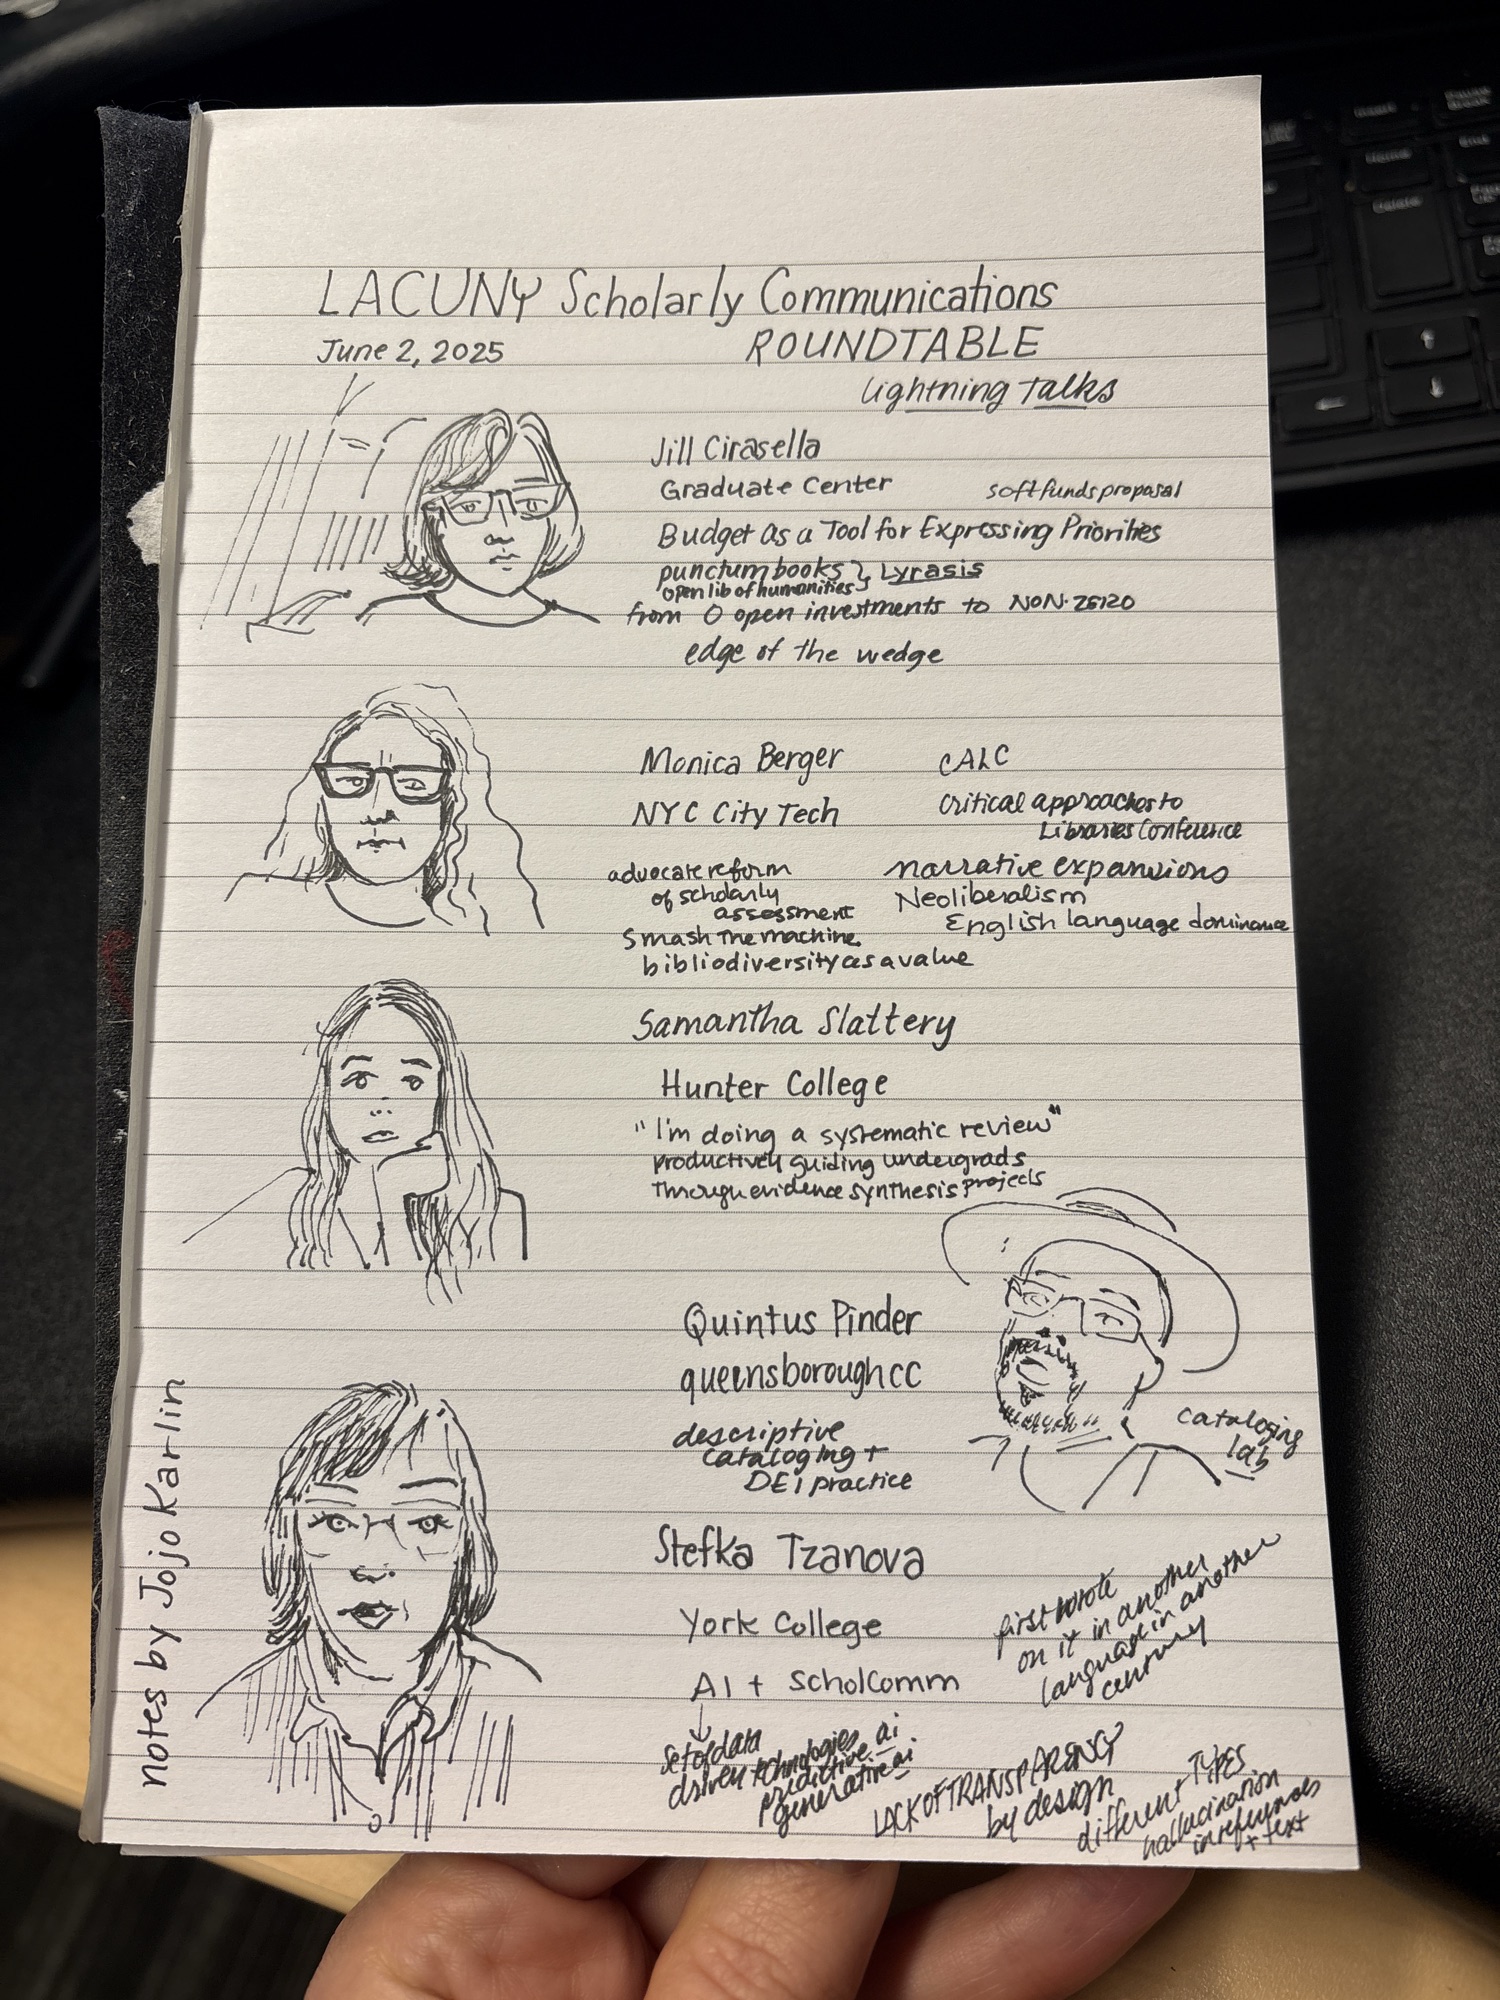 LACUNY Scholarly Communications
June 2, 2025
ROUNDTABLE
Lightning Talks
Jill Cirasella
Graduate Center
soft funds proposal
Budget As a Tool for Expressing Priorities
punctum books } Lyrasis
open lib of humanities
from 0 open investments to NON-ZERO
edge of the wedge
Monica Berger
NYC City Tech
CALC
Critical approaches to
Libraries Conference
advocate reform
of scholarly
assessment
Smash the machine.
bibliodiversity as a value
narrative expansions
Neoliberalism
English language dominance
Samantha Slattery
Hunter College
"I'm doing a systematic review"
productively guiding undergrads
through evidence synthesis projects
Quintus Pinder
queensborough CC
descriptive
cataloging +
DEI practice
cataloging
lab
Stefka Tzanova
York College
AI + ScholComm
first wrote
on it in another
language in another
century
set of data
driven technologies
predictive ai
generative ai
LACK OF TRANSPARENCY
by design
different TYPES
hallucination
in references
+ text
notes by Jojo Karlin
Insert
Home
End
Delete